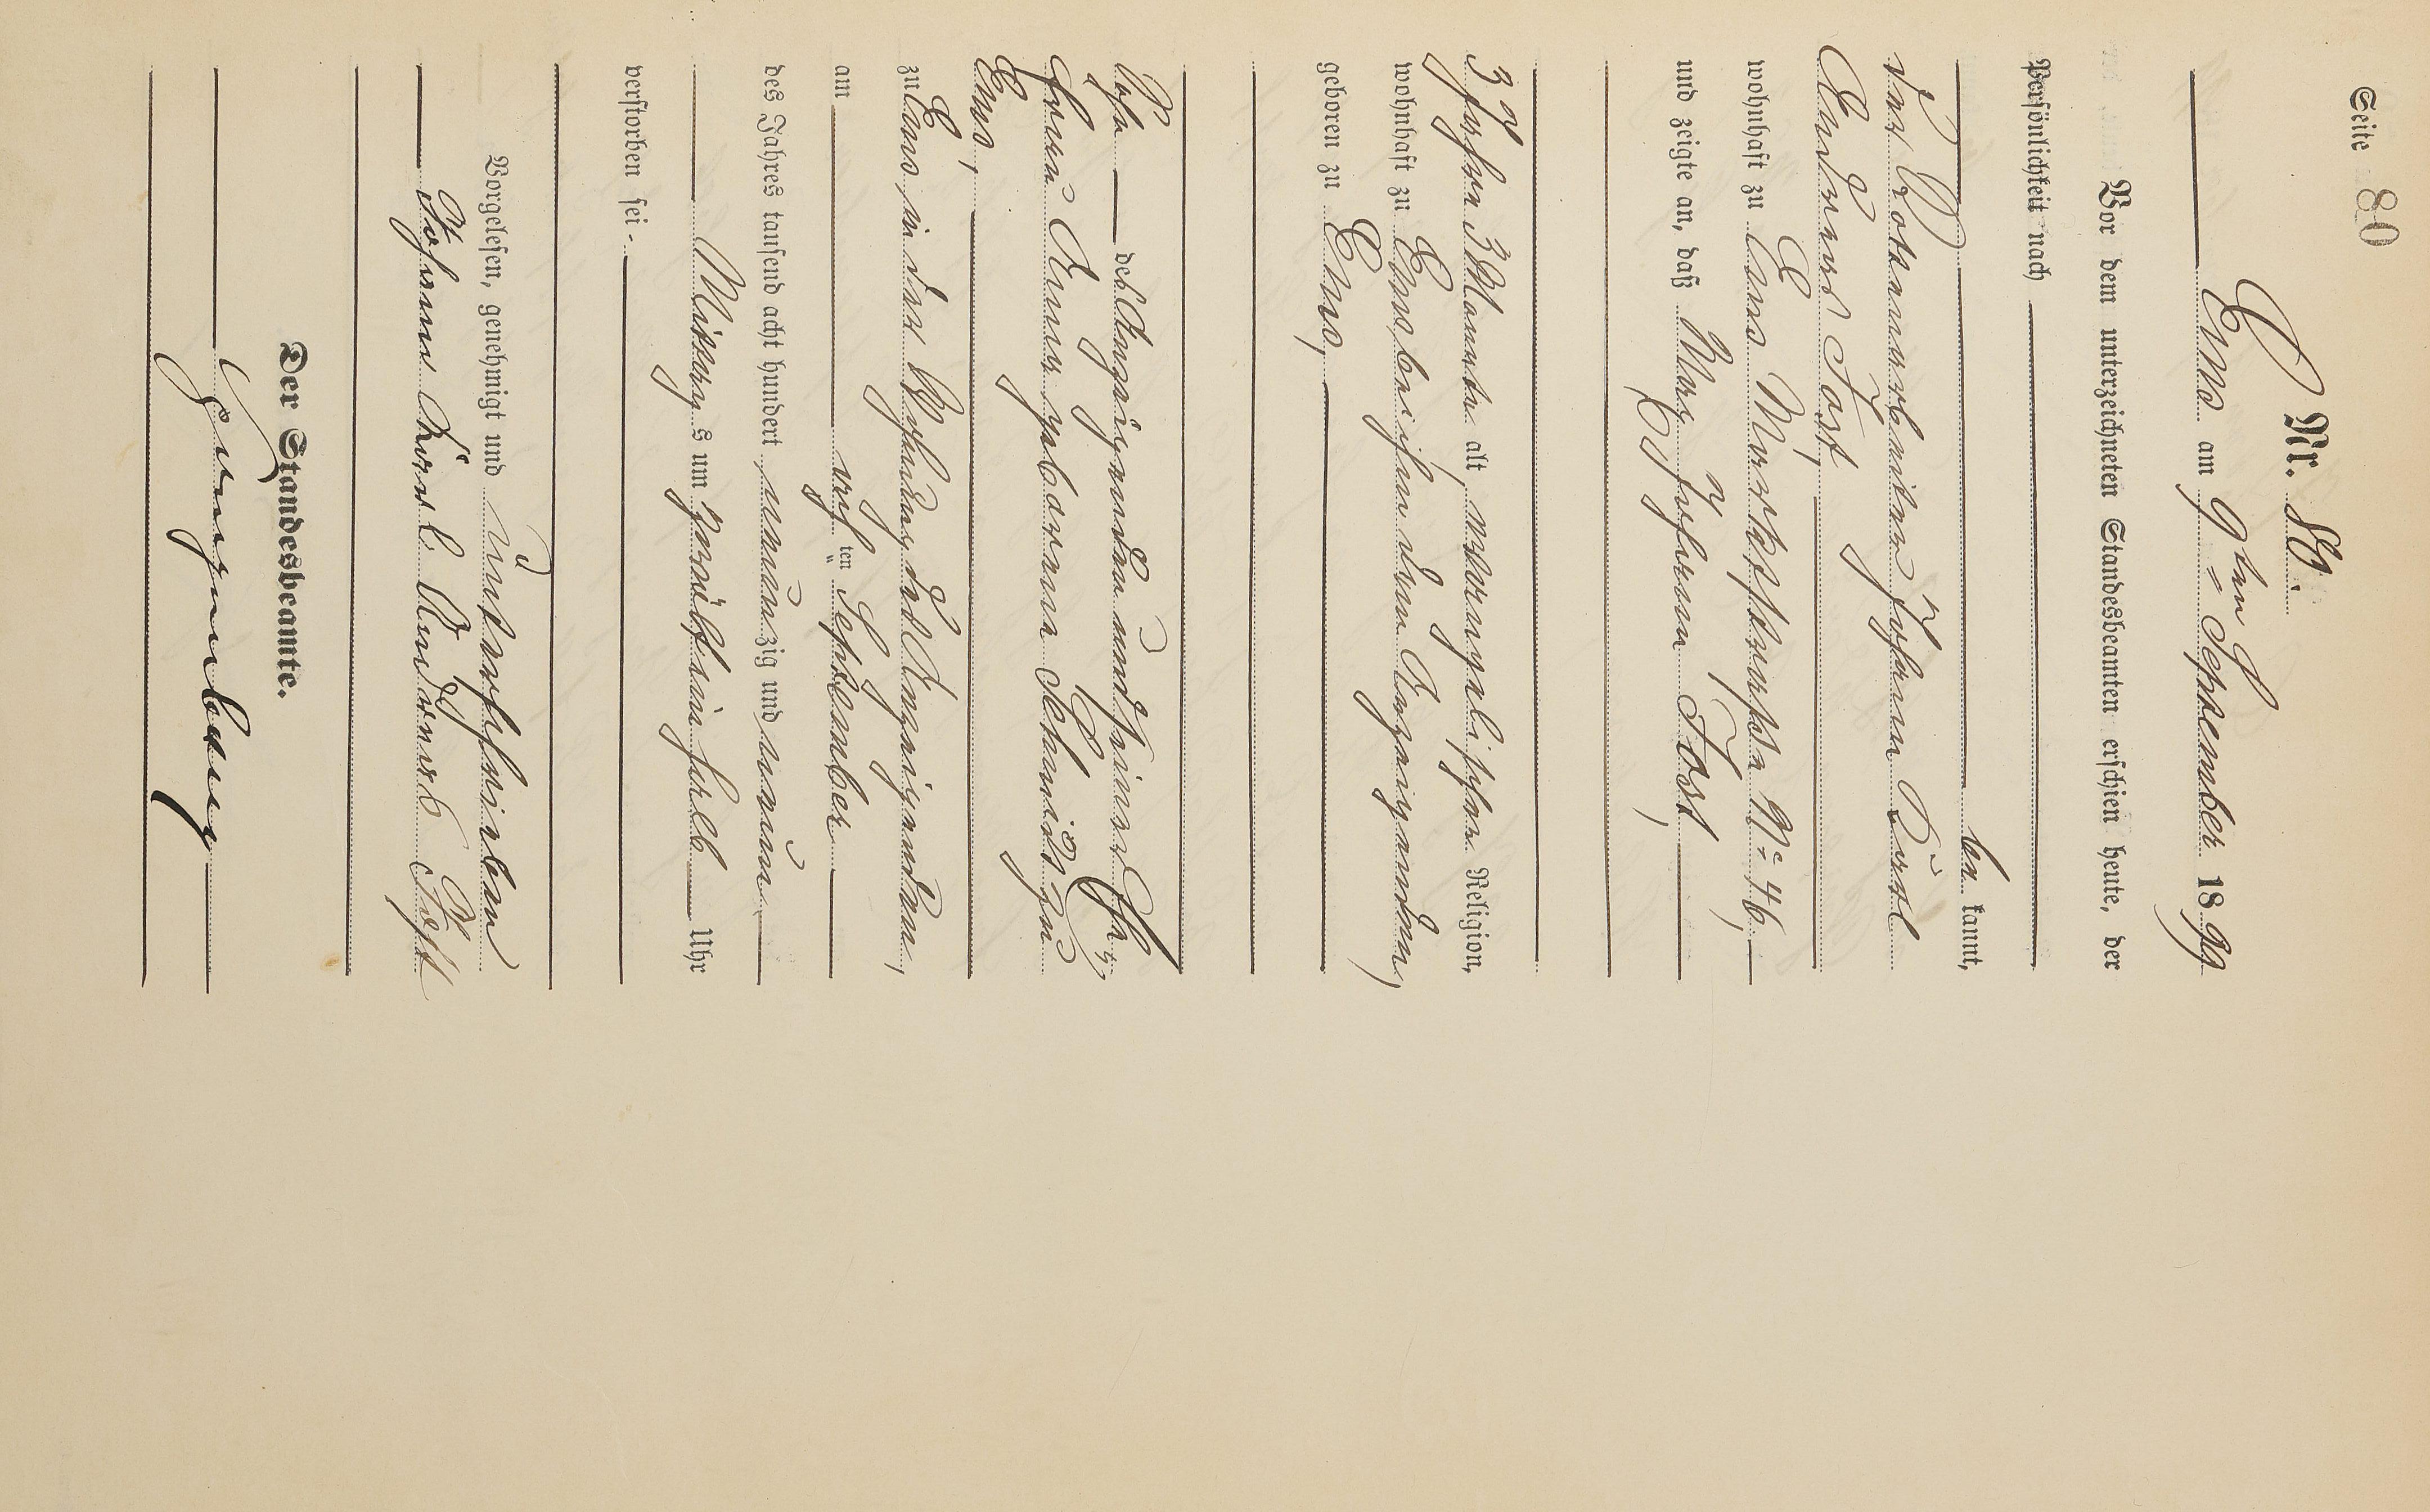 Seite 80
Nr. 89.
Ems am 9ten September 1899
Vor dem unterzeichneten Standesbeamten erschien heute, der
Persönlichkeit nach
be kannt,
der Johann Karl
Andreas Jost,
wohnhaft zu Ems Marktstraße No 46,
und zeigte an, daß Max Johann Jost,
3 Jahre 3 Monate alt, evangelischer Religion,
wohnhaft zu Ems, bei ihm dem Anzeigenden,
geboren zu Ems,
Sohn des Anzeigenden und seiner Ehe-
frau Anna geborenen Schmidt zu
Ems,
zu Ems, in der Wohnung des Anzeigenden,
am acht ten September
des Jahres tausend acht hundert neunzig und neun
Mittag s um zwölfeinhalb Uhr
verstorben sei.
Vorgelesen, genehmigt und unterschrieben
Johann Karl Andreas Jost
Der Standesbeamte.